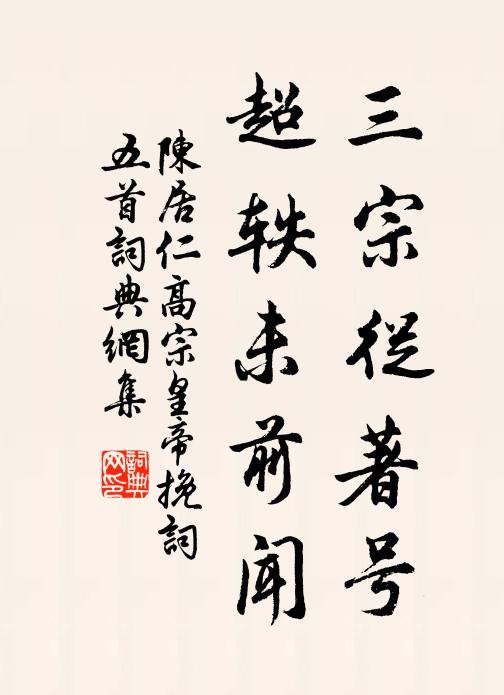 三宗從著号
超轶未前闻
陳居仁高宗皇帝挽詞
五首詞典網集
詞典
网印